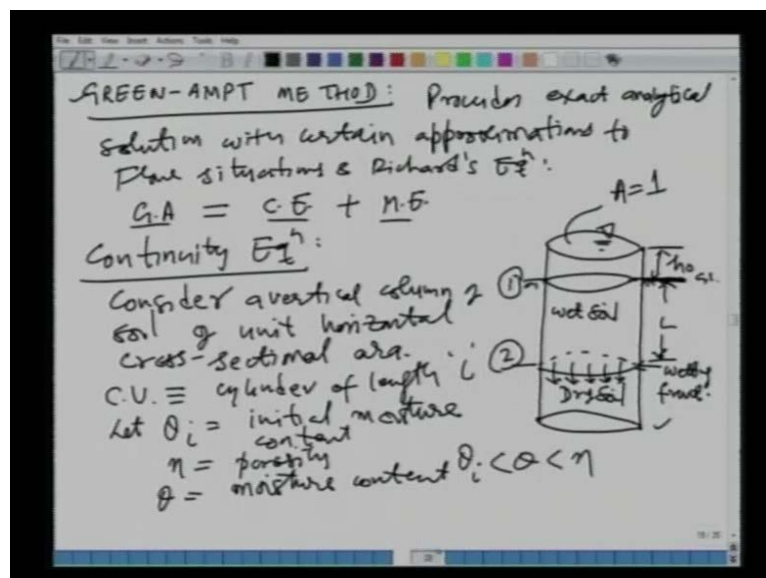 File Edit View Insert Actions Tools Help
GREEN-AMPT METHOD: Provides exact analytical
solution with certain approximations to
Flow situations & Richard's Eqn:
G.A = C.E + M.E.
Continuity Eqn:
Consider a vertical column of
soil of unit horizontal
cross-sectional area.
C.V. ≡ cylinder of length 'L'
Let θi = initial moisture
content
η = porosity
θ = moisture content θi < θ < η
A=1
h0
G.L.
①
wet soil
L
②
wetting
front.
Dry soil